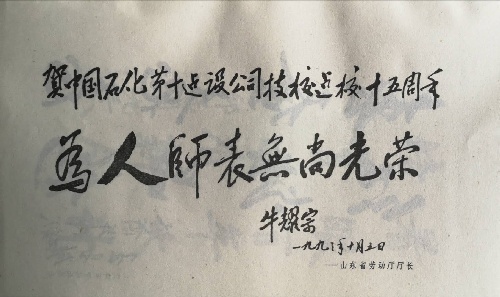 贺中国石化第十建设公司技校建校十五周年
為人師表無尚光荣
牛耀宗
一九九三年十月五日
——山东省劳动厅厅长